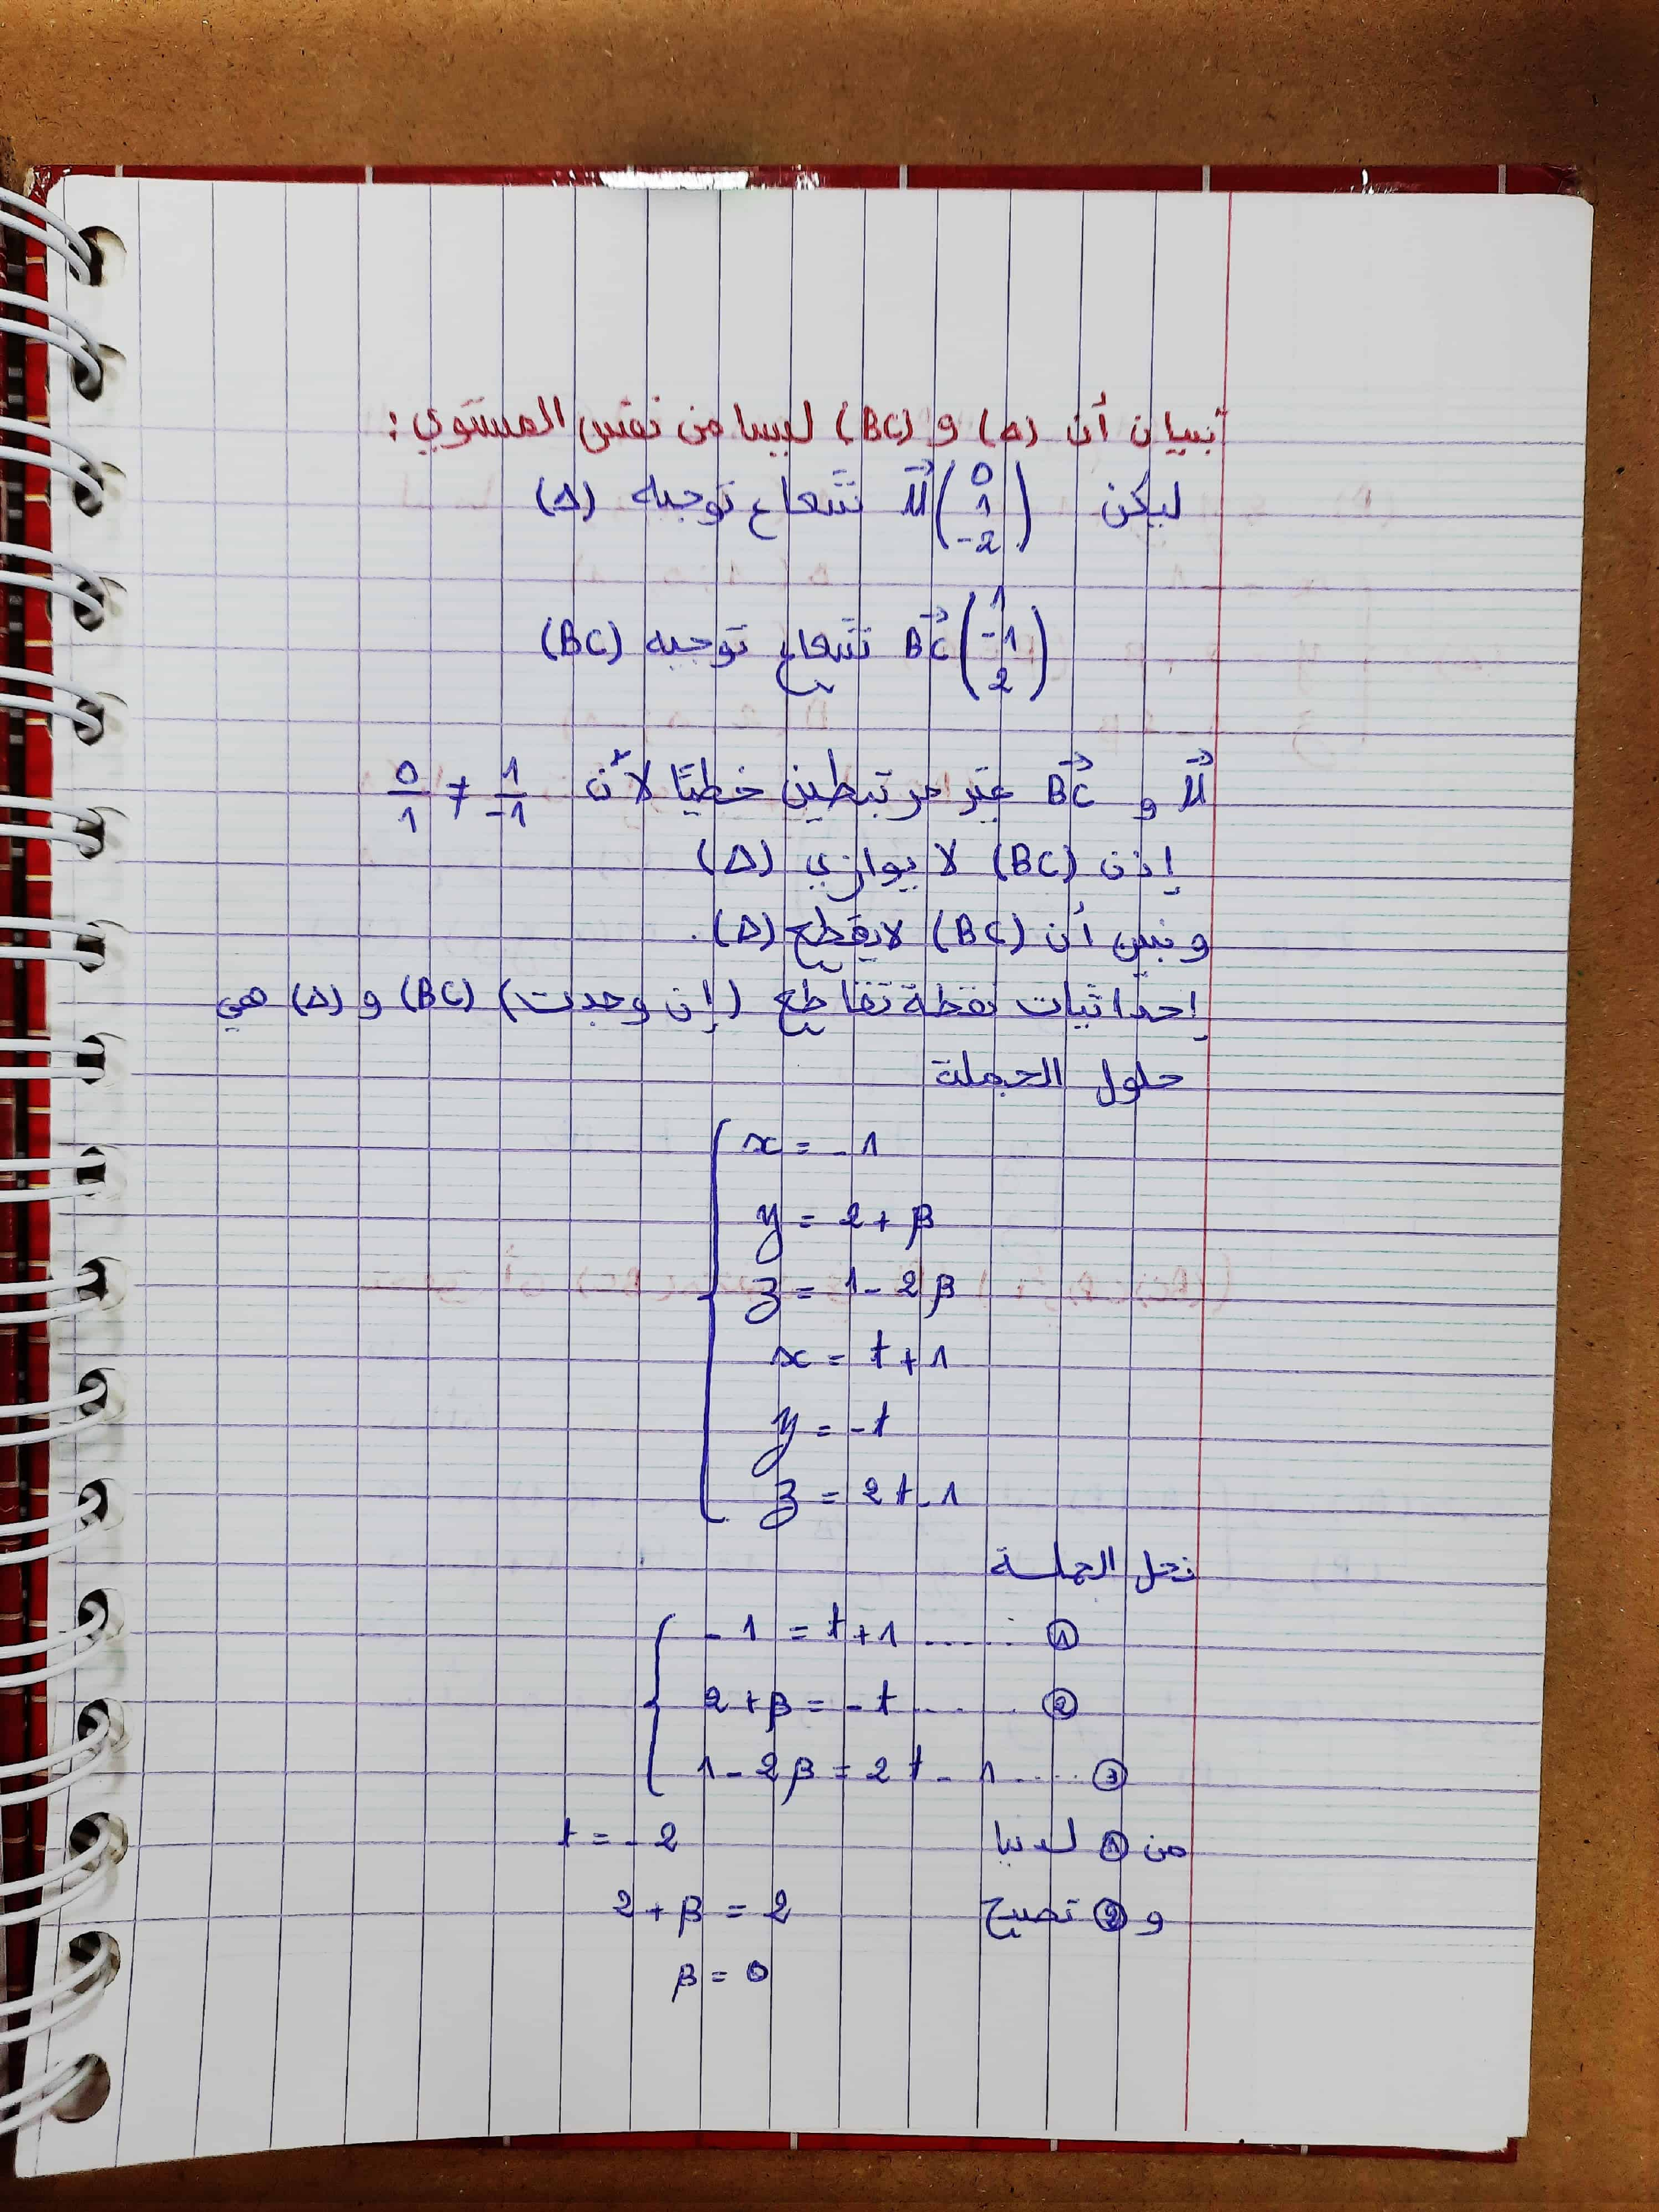 تبيان أن (Δ) و (BC) ليسا من نفس المستوي:
ليكن u⃗(0 1 -2) شعاع توجيه (Δ)
BC⃗(1 -1 2) شعاع توجيه (BC)
u⃗ و BC⃗ غير مرتبطين خطيًا لأن 1/-1 ≠ 0/1
إذن (BC) لا يوازي (Δ)
ونبين أن (BC) لا يقطع (Δ).
إحداثيات نقطة تقاطع (إن وجدت) (BC) و (Δ) هي
حلول الجملة
x = -1
y = 2 + β
z = 1 - 2β
x = t + 1
y = -t
z = 2t - 1
نحل الجملة
-1 = t + 1 ...... ①
2 + β = -t ...... ②
1 - 2β = 2t - 1 ..... ③
من ① لدينا t = -2
و ② تصبح 2 + β = 2
β = 0